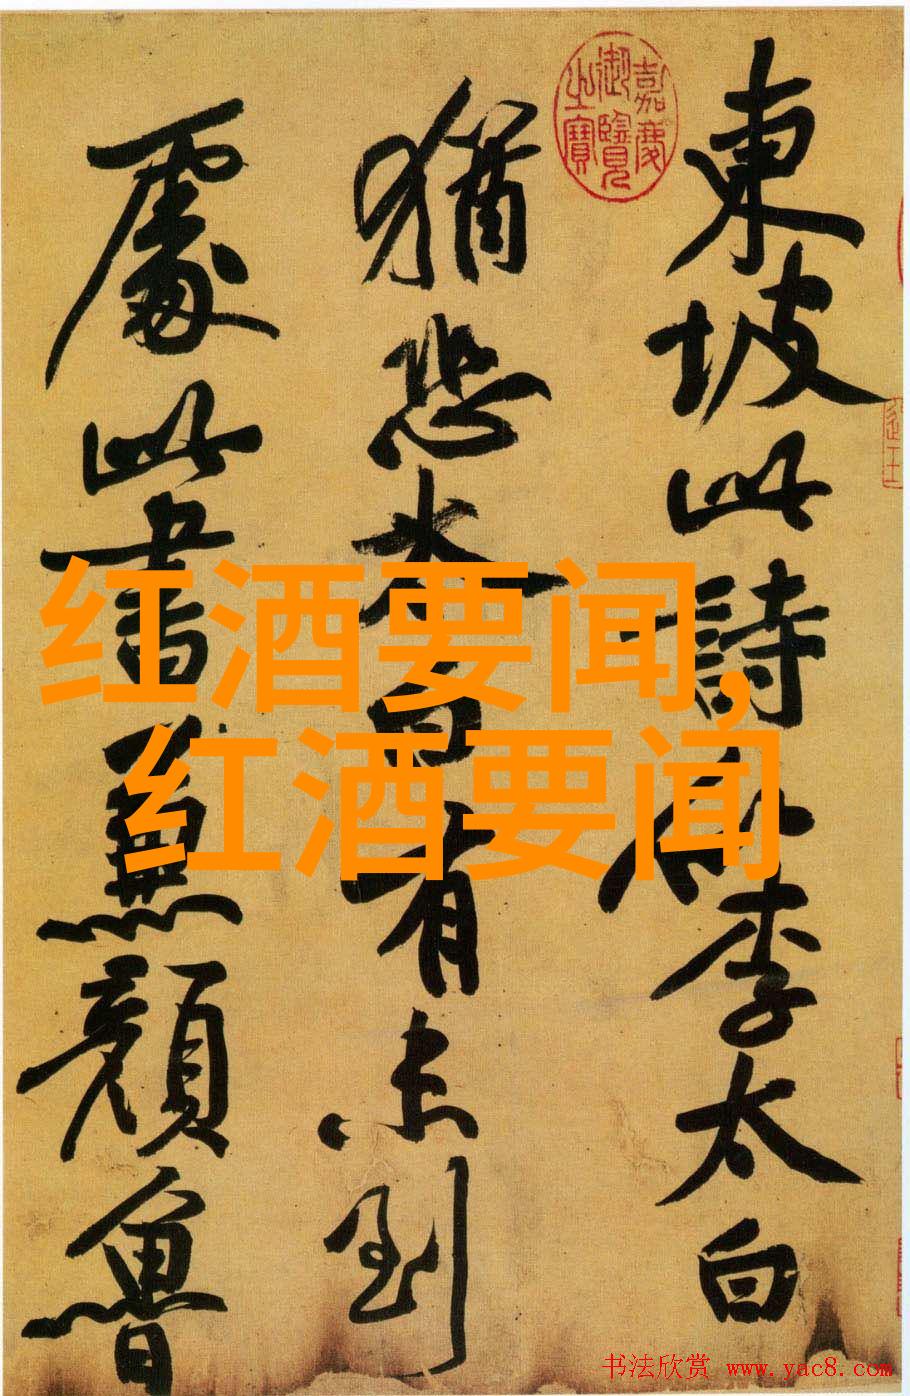 嘉慶
御覽
之寶
東坡此詩似李太白
猶恐太白有未到
處此書兼顏魯
红酒要闻,
红酒要闻
书法欣赏 www.yac8.com